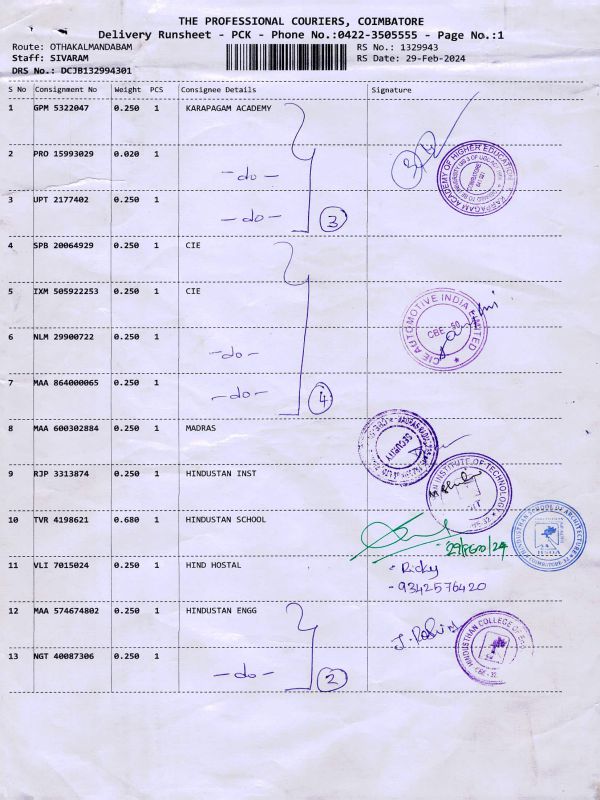 THE PROFESSIONAL COURIERS, COIMBATORE
Delivery Runsheet - PCK - Phone No.:0422-3505555 - Page No.:1
Route: OTHAKALMANDABAM RS No.: 1329943
Staff: SIVARAM RS Date: 29-Feb-2024
DRS No.: DCJB132994301
S No Consignment No Weight PCS Consignee Details Signature
1 GPM 5322047 0.250 1 KARAPAGAM ACADEMY
2 PRO 15993029 0.020 1 -do-
KARPAGAM ACADEMY OF HIGHER EDUCATION
3 UPT 2177402 0.250 1 -do- 3
4 SPB 20064929 0.250 1 CIE
5 IXM 505922253 0.250 1 CIE
CIE AUTOMOTIVE INDIA LIMITED
CBE - 50
6 NLM 29900722 0.250 1 -do-
7 MAA 864000065 0.250 1 -do- 4
8 MAA 600302884 0.250 1 MADRAS
SECURITY
9 RJP 3313874 0.250 1 HINDUSTAN INST
INSTITUTE OF TECHNOLOGY
10 TVR 4198621 0.680 1 HINDUSTAN SCHOOL
HINDUSTHAN SCHOOL OF ARCHITECTURE
11 VLI 7015024 0.250 1 HIND HOSTAL - Ricky
- 9342576420
12 MAA 574674802 0.250 1 HINDUSTAN ENGG
HINDUSTHAN COLLEGE OF
CBE - 32
13 NGT 40087306 0.250 1 -do- 2